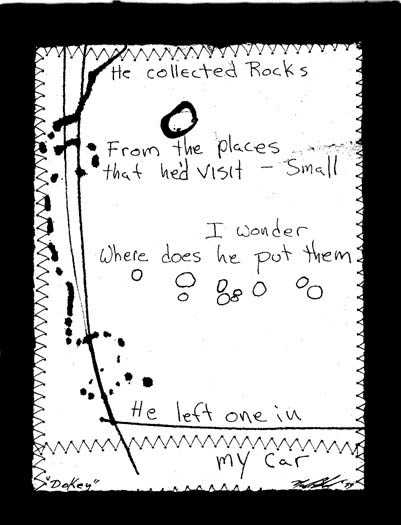 He collected Rocks
From the places
that he'd visit - Small
I wonder
Where does he put them
He left one in
my car
"DoKey"